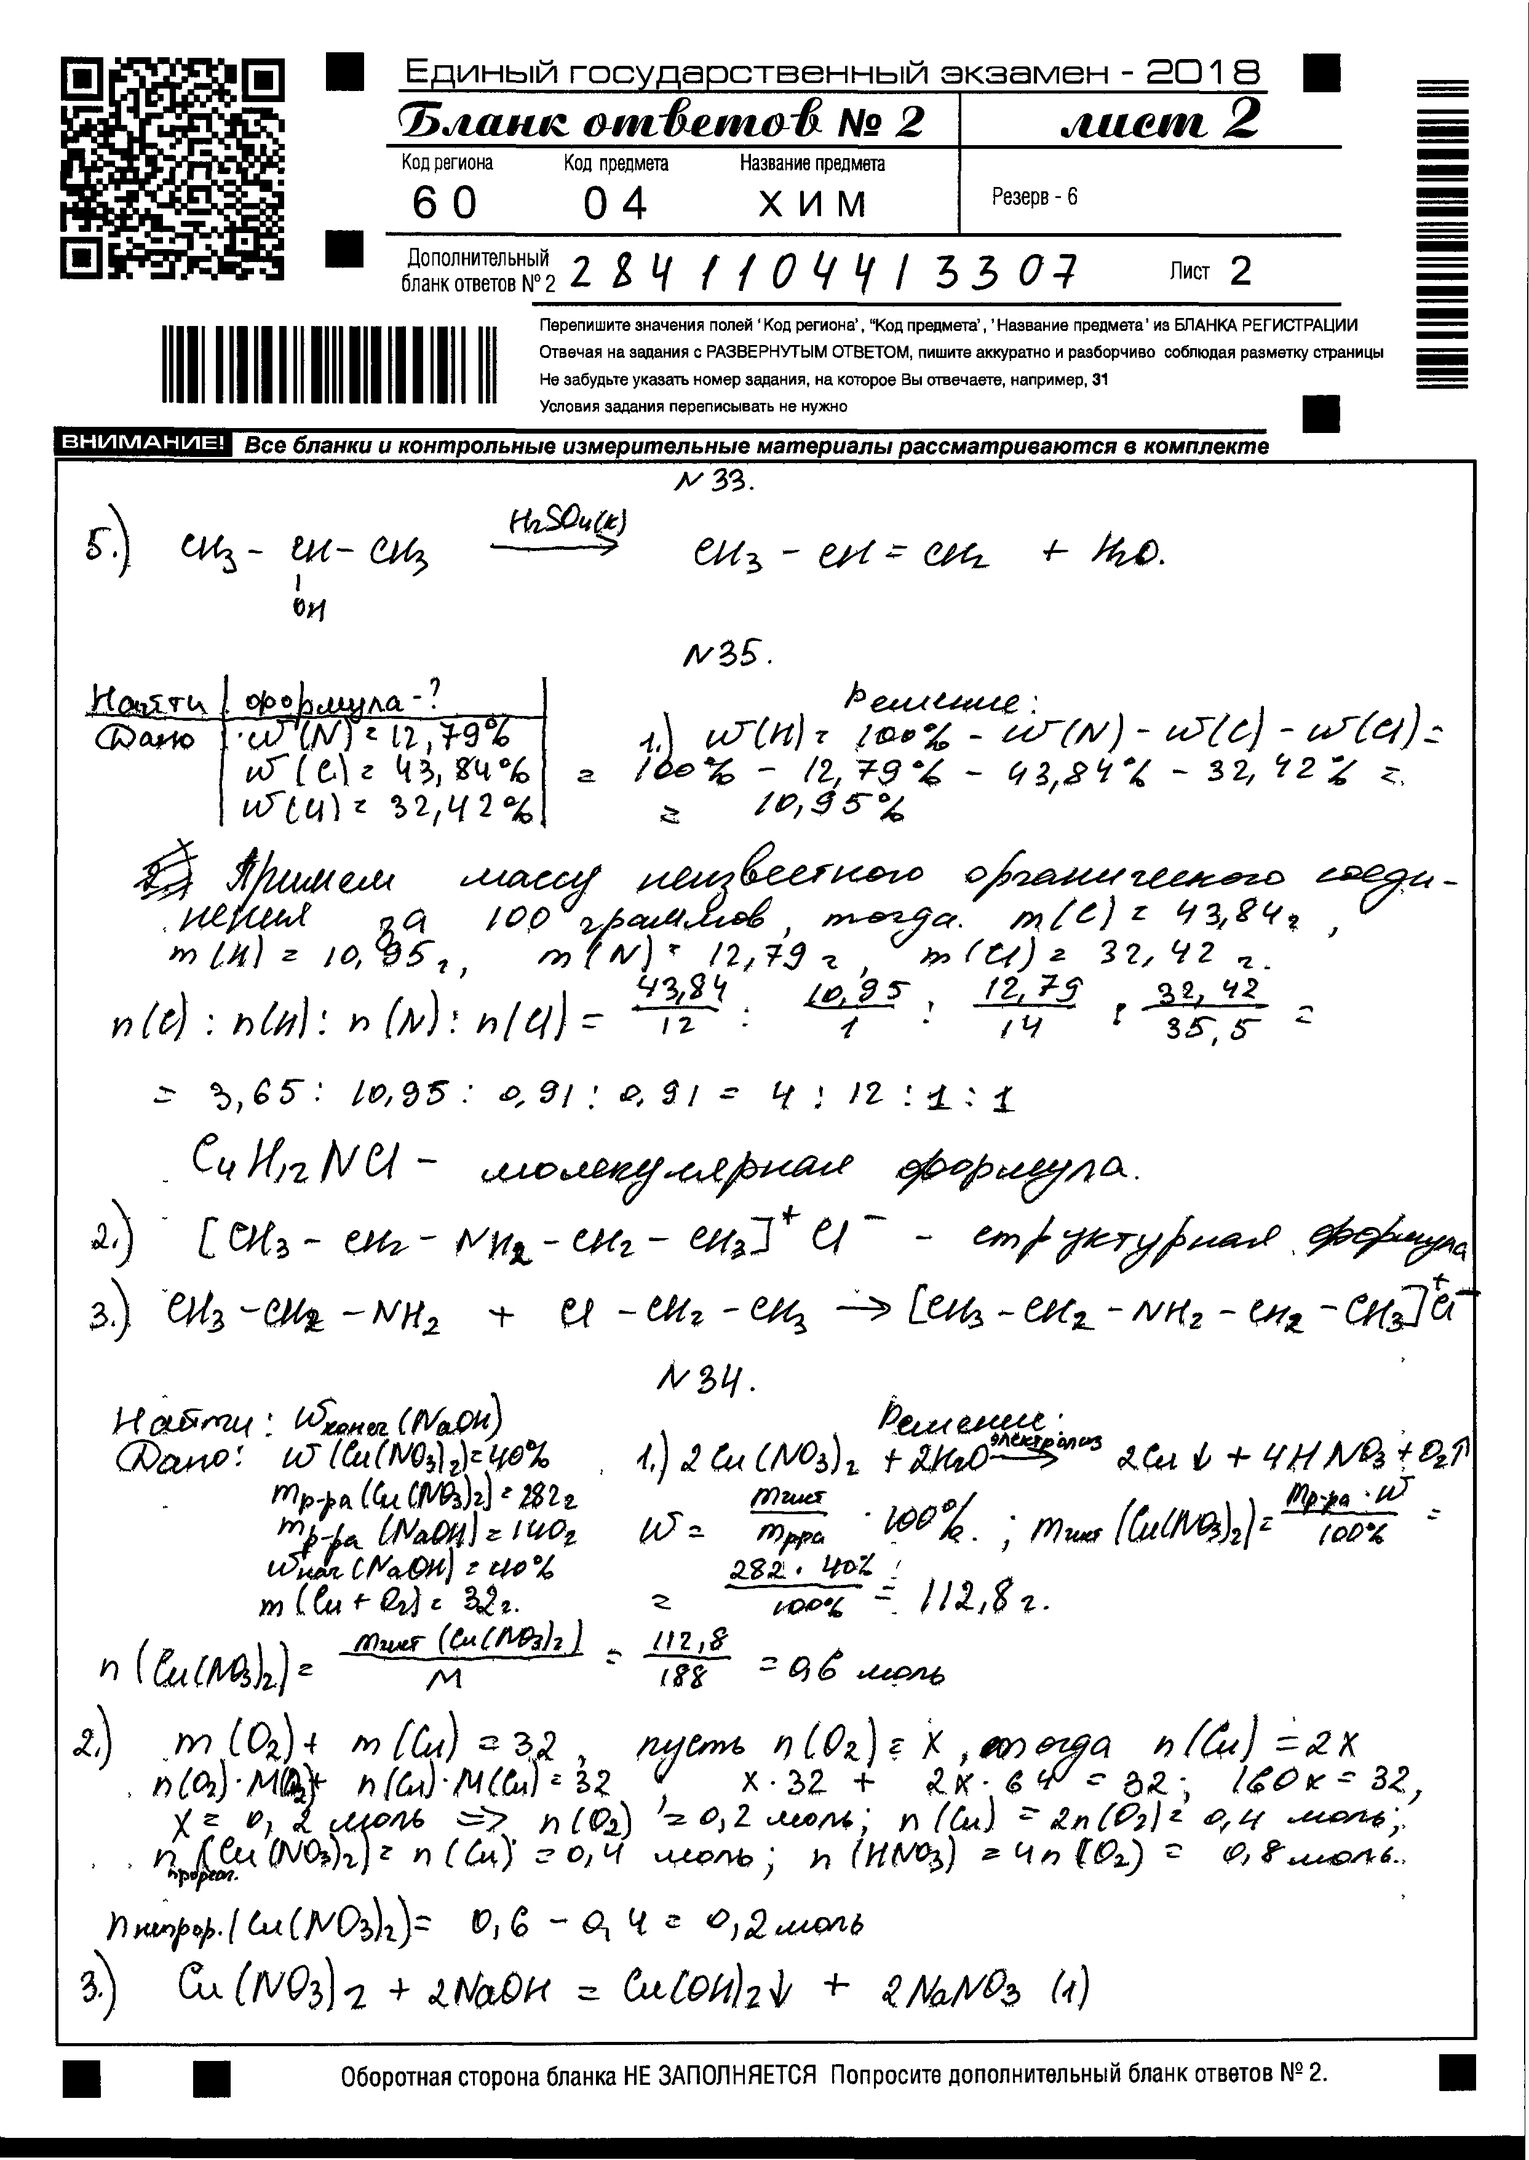 Единый государственный экзамен - 2018
Бланк ответов № 2
лист 2
Код региона
Код предмета
Название предмета
60
04
ХИМ
Резерв - 6
Дополнительный
бланк ответов № 2
2841104413307
Лист 2
Перепишите значения полей 'Код региона', "Код предмета", 'Название предмета' из БЛАНКА РЕГИСТРАЦИИ
Отвечая на задания с РАЗВЕРНУТЫМ ОТВЕТОМ, пишите аккуратно и разборчиво соблюдая разметку страницы
Не забудьте указать номер задания, на которое Вы отвечаете, например, 31
Условия задания переписывать не нужно
ВНИМАНИЕ! Все бланки и контрольные измерительные материалы рассматриваются в комплекте
N 33.
5.) CH3 - CH - CH3 H2SO4(к) → CH3 - CH = CH2 + H2O.
OH
N35.
Найти формула-?
Дано w(N) = 12,79%
w(C) = 43,84%
w(Cl) = 32,42%
Решение:
1.) w(H) = 100% - w(N) - w(C) - w(Cl) =
= 100% - 12,79% - 43,84% - 32,42% =
= 10,95%
Примем массу неизвестного органического соеди-
нения за 100 граммов, тогда. m(C) = 43,84г,
m(H) = 10,95г, m(N) = 12,79 г, m(Cl) = 32,42 г.
n(C) : n(H) : n(N) : n(Cl) = 43,84/12 : 10,95/1 : 12,79/14 : 32,42/35,5 =
= 3,65 : 10,95 : 0,91 : 0,91 = 4 : 12 : 1 : 1
C4H12NCl - молекулярная формула.
2.) [CH3 - CH2 - NH2 - CH2 - CH3]+ Cl- - структурная формула
3.) CH3 - CH2 - NH2 + Cl - CH2 - CH3 → [CH3 - CH2 - NH2 - CH2 - CH3]+Cl-
N34.
Найти: wконеч(NaOH)
Дано: w(Cu(NO3)2) = 40%
mр-ра(Cu(NO3)2) = 282г
mр-ра (NaOH) = 140г
wнач(NaOH) = 40%
m(Cu + O2) = 32г.
Решение:
1.) 2Cu(NO3)2 + 2H2O электролиз → 2Cu↓ + 4HNO3 + O2↑
w = mчист/mр-ра · 100%. ; mчист(Cu(NO3)2) = mр-ра · w/100% =
= 282 · 40%/100% = 112,8 г.
n(Cu(NO3)2) = mчист(Cu(NO3)2)/M = 112,8/188 = 0,6 моль
2.) m(O2) + m(Cu) = 32, пусть n(O2) = x, тогда n(Cu) = 2x
n(O2)·M(O2) + n(Cu)·M(Cu) = 32 x·32 + 2x·64 = 32; 160x = 32,
x = 0,2 моль => n(O2) = 0,2 моль; n(Cu) = 2n(O2) = 0,4 моль;
nпрореаг.(Cu(NO3)2) = n(Cu) = 0,4 моль; n(HNO3) = 4n(O2) = 0,8 моль.
nнепрор.(Cu(NO3)2) = 0,6 - 0,4 = 0,2 моль
3.) Cu(NO3)2 + 2NaOH = Cu(OH)2↓ + 2NaNO3 (1)
Оборотная сторона бланка НЕ ЗАПОЛНЯЕТСЯ Попросите дополнительный бланк ответов № 2.